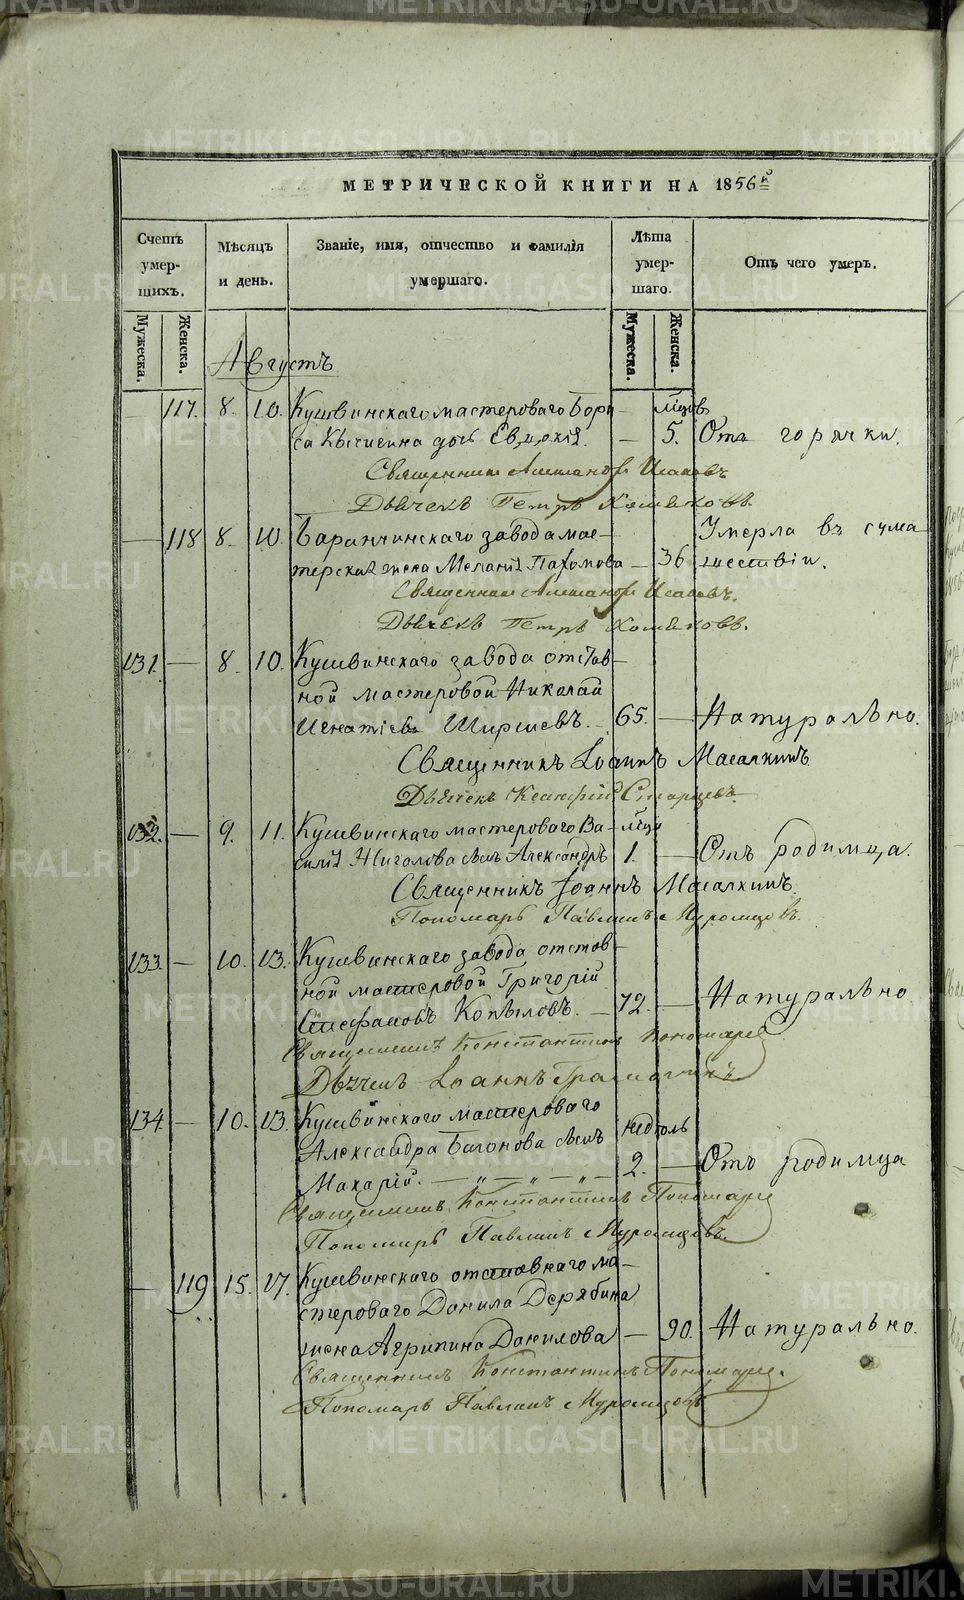 METRIKI.GASO-URAL.RU
МЕТРИЧЕСКОЙ КНИГИ НА 1856й
Счетъ умер-шихъ.
Мѣсяцъ и день.
Званіе, имя, отчество и фамилія умершаго.
Лѣта умер-шаго.
Отъ чего умеръ.
Мужеска.
Женска.
Мужеска.
Женска.
Августъ
— 117. 8. 10. Кушвинскаго мастероваго Бори— мцовъ
са дочь Евдокія. — 5. Отъ горячки.
Священникъ Александръ Исаковъ
Дьячекъ Петръ Хомяковъ.
— 118 8. 10. Баранчинскаго завода мас— Умерла въ сума
терская жена Меланія Пахомова — 36 шествіи.
Священникъ Александръ Исаковъ.
Дьячекъ Петръ Хомяковъ.
131. — 8. 10. Кушвинскаго завода отстав—
ной мастеровой Николай
Игнатіевъ Ширшевъ. 65. — Натурально.
Священникъ Іоаннъ Масалкинъ
Дьячекъ Старцевъ.
132. — 9. 11. Кушвинскаго мастероваго Ва— мцъ
силія Жиголова сынъ Александръ 1. — Отъ родимца.
Священникъ Іоаннъ Масалкинъ.
Пономарь Павлинъ Муромцовъ.
133. — 10. 13. Кушвинскаго завода отстав—
ной мастеровой Григорій
Стефановъ Копыловъ. — 72. — Натурально.
Священникъ Константинъ Пономаревъ
Дьячекъ Іоаннъ
134 — 10. 13. Кушвинскаго мастероваго
Александра сынъ недѣль
Макарій. — „ — „ — „ — 2. — Отъ родимца
Священникъ Константинъ Пономаревъ
Пономарь Павлинъ Муромцовъ.
— 119 15. 17. Кушвинскаго отставнаго ма—
стероваго Данила Дерябина
жена Агрипина Данилова — 90. Натурально.
Священникъ Константинъ Пономаревъ.
Пономарь Павлинъ Муромцовъ